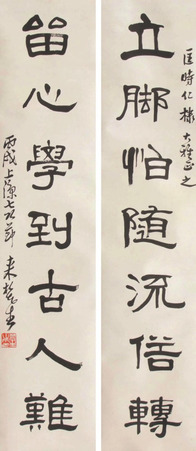 匡時仁棣大雅正之
立脚怕随流俗轉
留心學到古人難
丙戌
来楚生